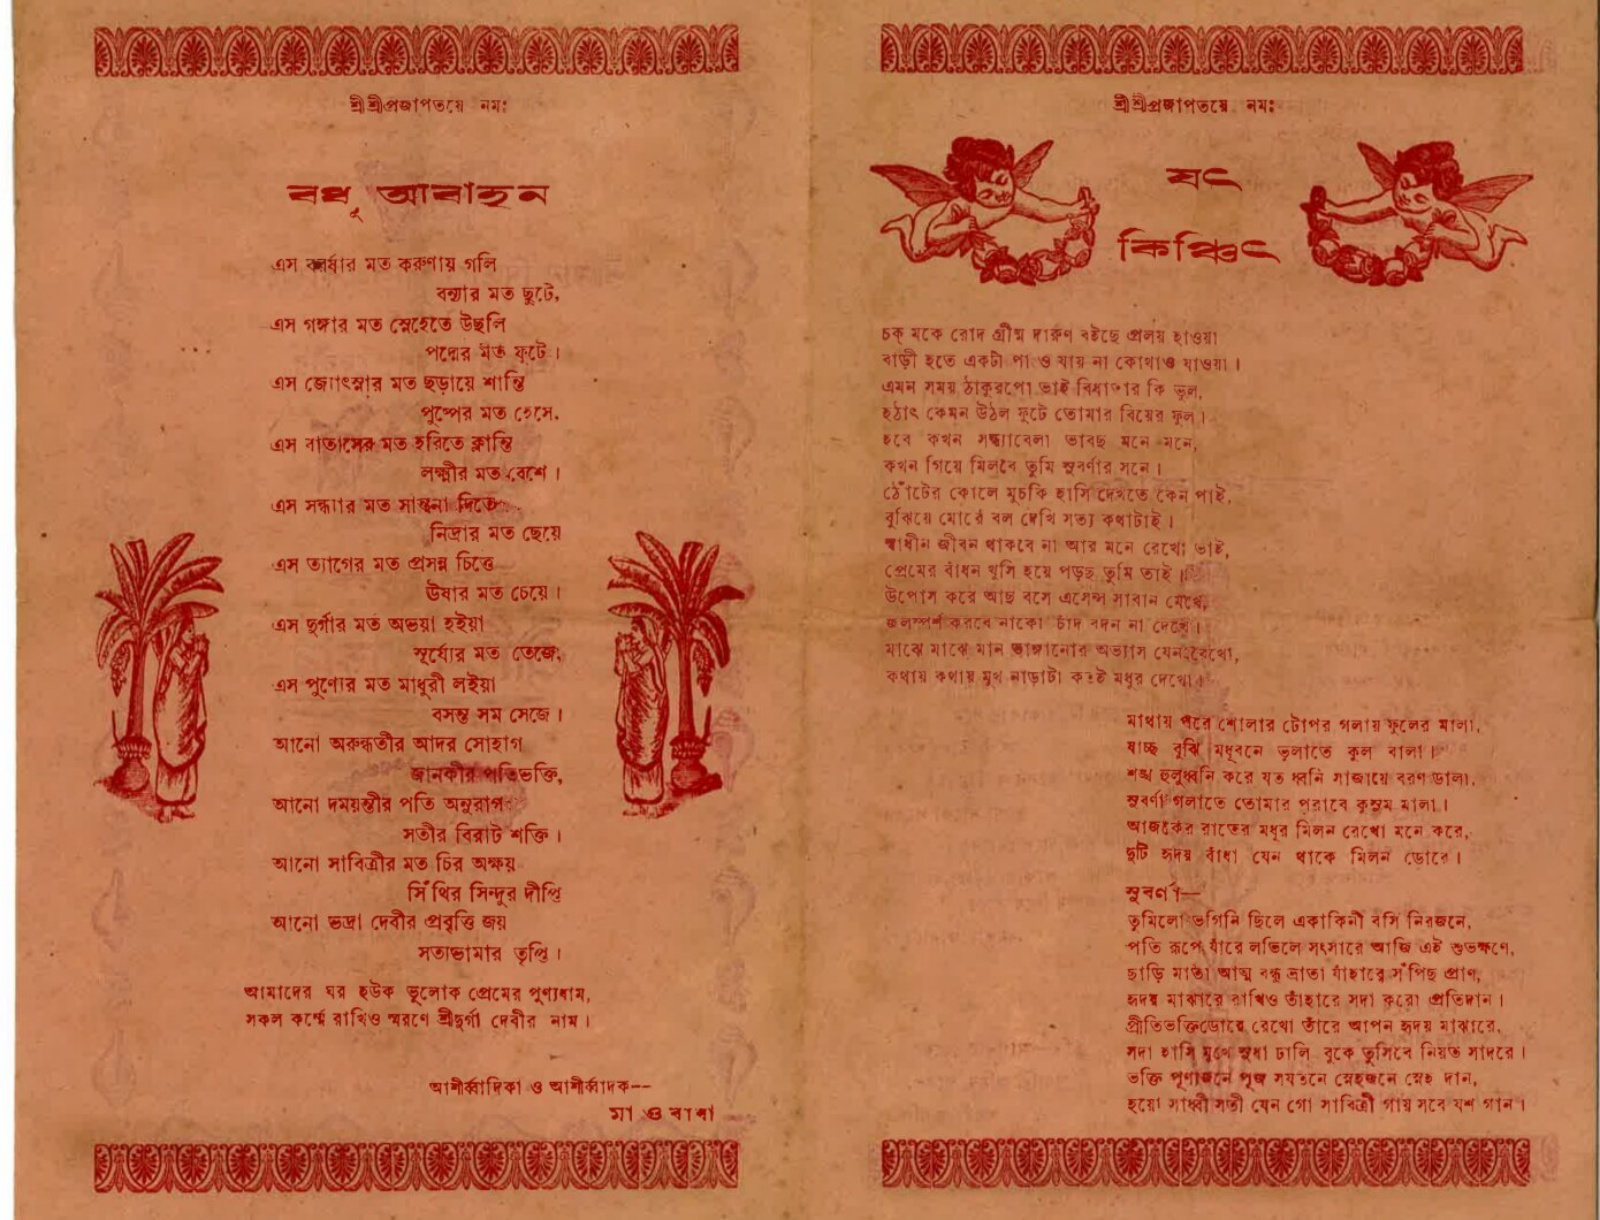 শ্রীশ্রীপ্রজাপতয়ে নমঃ
বধূ আবাহন
এস বর্ষার মত করুণায় গলি
বন্যার মত ছুটে,
এস গঙ্গার মত স্নেহেতে উছলি
পদ্মের মত ফুটে।
এস জ্যোৎস্নার মত ছড়ায়ে শান্তি
পুষ্পের মত হেসে,
এস বাতাসের মত হরিতে ক্লান্তি
লক্ষ্মীর মত বেশে।
এস সন্ধ্যার মত সান্ত্বনা দিতে
নিদ্রার মত ছেয়ে
এস ত্যাগের মত প্রসন্ন চিত্তে
ঊষার মত চেয়ে।
এস দুর্গার মত অভয়া হইয়া
সূর্য্যের মত তেজে,
এস পুণ্যের মত মাধুরী লইয়া
বসন্ত সম সেজে।
আনো অরুন্ধতীর আদর সোহাগ
জানকীর পতিভক্তি,
আনো দময়ন্তীর পতি অনুরাগ
সতীর বিরাট শক্তি।
আনো সাবিত্রীর মত চির অক্ষয়
সিঁথির সিন্দুর দীপ্তি
আনো ভদ্রা দেবীর প্রবৃত্তি জয়
সত্যভামার তৃপ্তি।
আমাদের ঘর হউক ভূলোক প্রেমের পুণ্যধাম,
সকল কর্ম্মে রাখিও স্মরণে শ্রীদুর্গা দেবীর নাম।
আশীর্ব্বাদিকা ও আশীর্ব্বাদক--
মা ও বাবা
শ্রীশ্রীপ্রজাপতয়ে নমঃ
যৎ
কিঞ্চিৎ
চক্ মকে রোদ গ্রীষ্ম দারুণ বইছে প্রলয় হাওয়া
বাড়ী হতে একটা পা ও যায় না কোথাও যাওয়া।
এমন সময় ঠাকুরপো ভাই বিধাতার কি ভুল,
হঠাৎ কেমন উঠল ফুটে তোমার বিয়ের ফুল।
হবে কখন সন্ধ্যাবেলা ভাবছ মনে মনে,
কখন গিয়ে মিলবে তুমি সুবর্ণার সনে।
ঠোঁটের কোলে মুচকি হাসি দেখতে কেন পাই,
বুঝিয়ে মোরে বল দেখি সত্য কথাটাই।
স্বাধীন জীবন থাকবে না আর মনে রেখো ভাই,
প্রেমের বাঁধন খুসি হয়ে পড়ছ তুমি তাই।
উপোস করে আছ বসে এসেন্স সাবান মেখে,
জলস্পর্শ করবে নাকো চাঁদ বদন না দেখে।
মাঝে মাঝে মান ভাঙ্গানোর অভ্যাস যেন রেখো,
কথায় কথায় মুখ নাড়াটা কতই মধুর দেখো।
মাথায় পরে শোলার টোপর গলায় ফুলের মালা,
যাচ্ছ বুঝি মধুবনে ভুলাতে কুল বালা।
শঙ্খ হুলুধ্বনি করে যত ধ্বনি সাজায়ে বরণ ডালা,
সুবর্ণা গলাতে তোমার পরাবে কুসুম মালা।
আজকের রাতের মধুর মিলন রেখো মনে করে,
দুটি হৃদয় বাঁধা যেন থাকে মিলন ডোরে।
সুবর্ণা—
তুমিলো ভগিনি ছিলে একাকিনী বসি নিরজনে,
পতি রূপে যাঁরে লভিলে সংসারে আজি এই শুভক্ষণে,
ছাড়ি মাতা আত্ম বন্ধু ভ্রাতা যাঁহারে সঁপিছ প্রাণ,
হৃদয় মাঝারে রাখিও তাঁহারে সদা করো প্রতিদান।
প্রীতিভক্তিডোরে রেখো তাঁরে আপন হৃদয় মাঝারে,
সদা হাসি মুখে সুধা ঢালি বুকে তুসিবে নিয়ত সাদরে।
ভক্তি পূণ্যজনে পূজ সযতনে স্নেহজনে স্নেহ দান,
হয়ো সাধ্বী সতী যেন গো সাবিত্রী গায় সবে যশ গান।